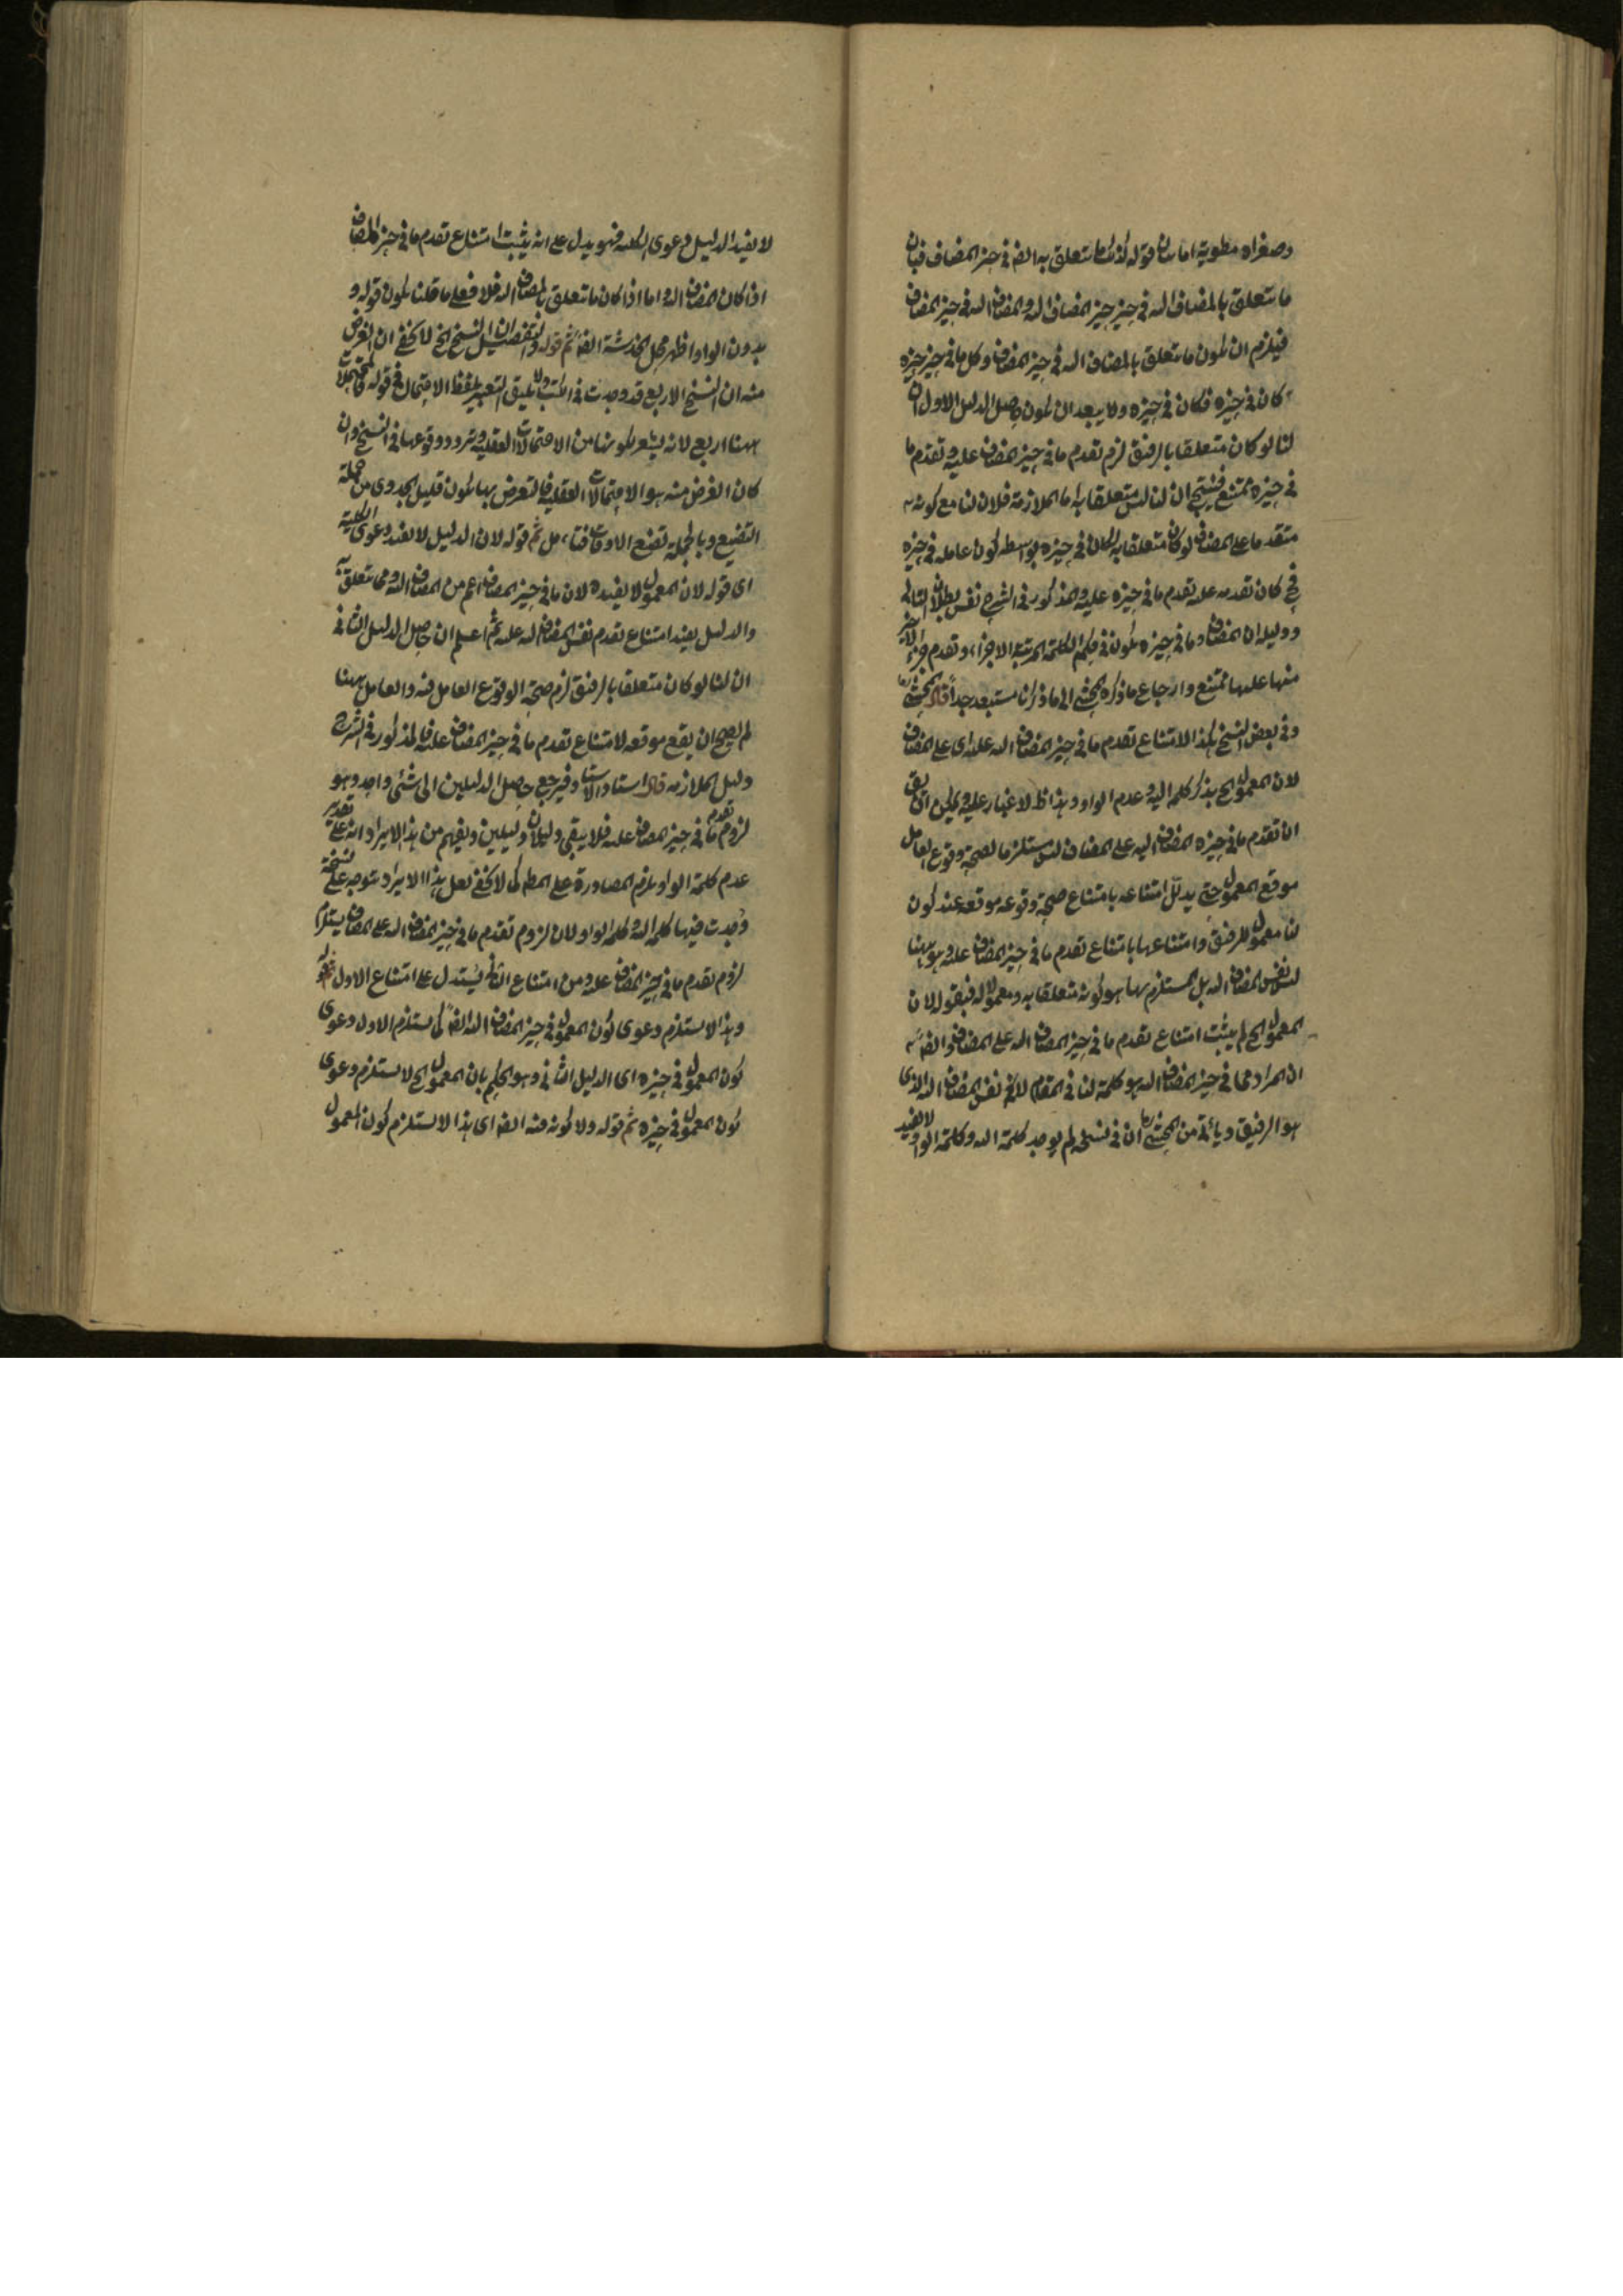 وصغراه مطوية اما بيان قوله لان ما يتعلق به ايضا في حيز المضاف فبان
ما يتعلق بالمضاف اليه في حيز حيز المضاف اليه والمضاف اليه في حيز المضاف
فيلزم ان يكون ما يتعلق بالمضاف اليه في حيز المضاف وكل ما في حيز حيزه
كان في حيزه فكان في حيزه ولا يبعد ان يكون حاصل الدليل الاول ان
لنا لو كان متعلقا بالرفيق لزم تقدم ما في حيز المضاف عليه وتقدم ما
في حيزه ممتنع فينتج ان لنا ليس متعلقا به اما الملازمة فلان لنا مع كونه
متقدما على المضاف لو كان متعلقا به لكان في حيزه بواسطة كون عامله في حيزه
فح كان تقدمه عليه تقدم ما في حيزه عليه والمذكور في الشرح نفس بطلان التالي
ودليله ان المضاف وما في حيزه يكون في حكم الكلمة المرتبة الاجزاء وتقدم جزء الاخر
منها عليها ممتنع وارجاع ما ذكره المحشي الى ما ذكرنا مستبعد جدا قال المحشي
وفي بعض النسخ هكذا لامتناع تقدم ما في حيز المضاف اليه عليه اى على المضاف
لان المعمول الخ بذكر كلمة اليه وعدم الواو وهذا ظ لا غبار عليه ويمكن ان يق
ان تقدم ما في حيزه المضاف اليه على المضاف ليس مستلزما لصحة وقوع العامل
موقع المعمول حتى يدل امتناعه بامتناع صحة وقوعه موقعه عند كون
لنا معمول الرفيق وامتناعها بامتناع تقدم ما في حيز المضاف عليه وهو ههنا
ليس نفس المضاف اليه بل المستلزم بها هو كونه متعلقا به ومعمولا له فبقوله لان
المعمول الخ لم يثبت امتناع تقدم ما في حيز المضاف اليه على المضاف وايضا
ان المراد مما في حيز المضاف اليه هو كلمة لنا في المقام لا نفس المضاف اليه الذى
هو الرفيق ويأتي من المحشي ان في نسخة لم يوجد كلمة اليه وكلمة الواو لا يفيد
لا يفيد الدليل دعوى الكلية فهو يدل على انه يثبت امتناع تقدم ما في حيز المضاف
اذا كان المضاف اليه واما اذا كان ما يتعلق بالمضاف اليه فلا فعلى ما قلنا يكون قوله و
بدون الواو اظهر محل الخدشة ايضا ثم قوله والتفصيل ان النسخ الخ لا يخفى ان الغرض
منه ان النسخ الاربع قد وجدت في الكتب ولا يليق التعبير بلفظ الاحتمال في قوله فالمحتملات
ههنا اربع لانه يشعر بكونها من الاحتمالات العقلية وتردد وقوعها في النسخ وان
كان الغرض منه هو الاحتمالات العقلية فالتعرض بها يكون قليل الجدوى من جملة
التضييع وبالجملة تضيع الاوقات فتامل ثم قوله لان الدليل لا يفيد دعوى الكلية
اى قوله لان المعمول لا يفيده لان ما في حيز المضاف اعم من المضاف اليه ومما يتعلق به
والدليل يفيد امتناع تقدم نفس المضاف اليه عليه ثم اعلم ان حاصل الدليل الثاني
ان لنا لو كان متعلقا بالرفيق لزم صحة الوقوع العامل فيه والعامل ههنا
لم يصح ان يقع موقعه لامتناع تقدم ما في حيز المضاف عليه فالمذكور في الشرح
دليل الملازمة قال استاد الاستاد فيرجع حاصل الدليلين الى شئى واحد وهو
لزوم تقدم ما في حيز المضاف عليه فلا يبقى دليلان دليلين ويفهم من هذا الايراد انه على تقدير
عدم كلمة الواو يلزم المصادرة على المط كما لا يخفى لعل هذا الايراد يتوجه على نسخة
وجدت فيها كلمة اليه وكلمة الواو لان لزوم تقدم ما في حيز المضاف اليه على المضاف يستلزم
لزوم تقدم ما في حيز المضاف عليه ومن امتناع الثاني يستدل على امتناع الاول ثم قوله
وهذا لا يستلزم دعوى كون المعمول في حيز المضاف اليه ايضا كما يستلزم الاول دعوى
كون المعمول في حيزه اى الدليل الثاني وهو الحكم بان المعمول الخ لا يستلزم دعوى
كون المعمول في حيزه ثم قوله ولا كونه منه ايضا اى هذا لا يستلزم كون المعمول